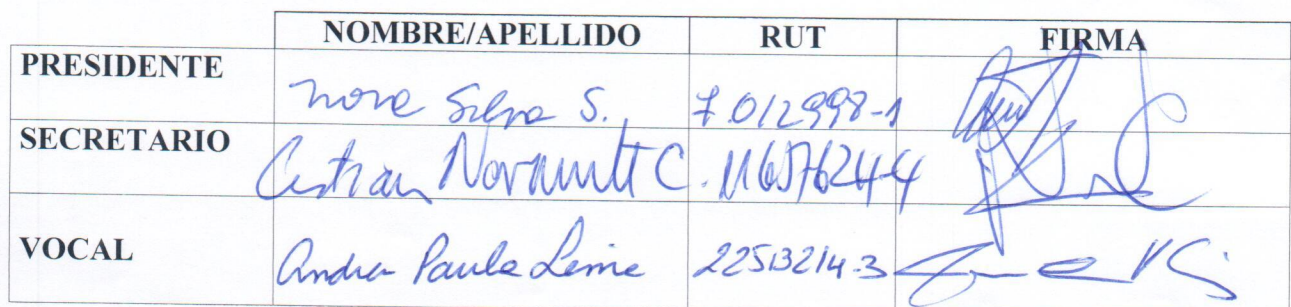 NOMBRE/APELLIDO RUT FIRMA
PRESIDENTE
Silva S. 7.012998-1
SECRETARIO
Cristian C.
VOCAL
Andrea Paula Leme 22513214-3